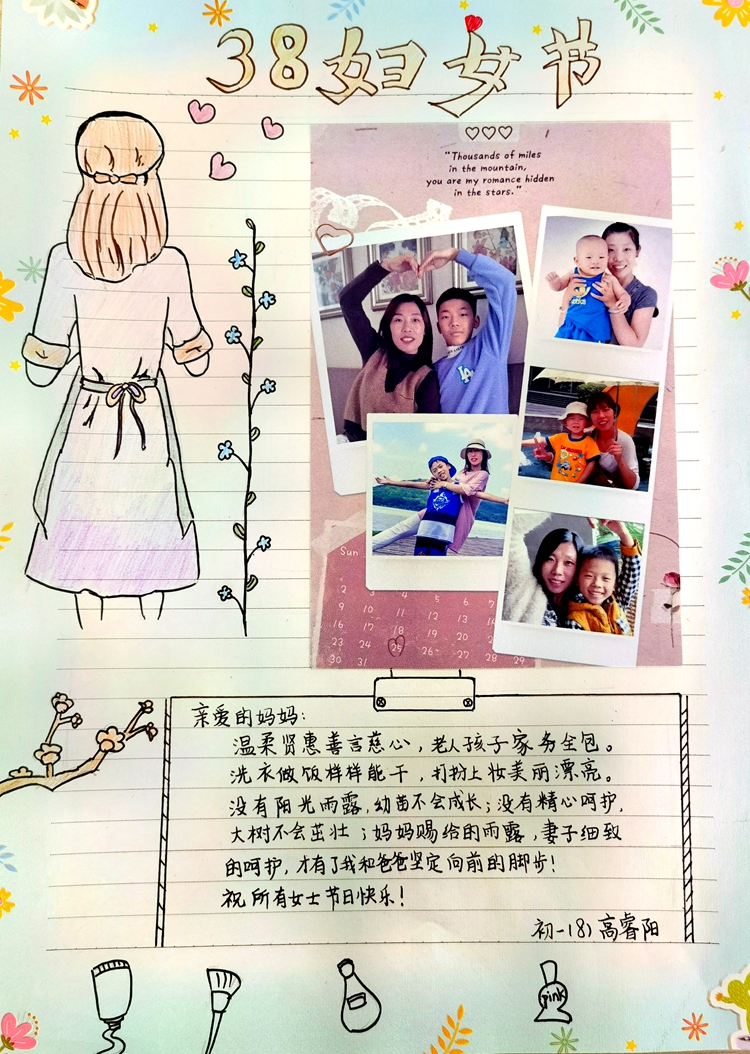 38妇女节
"Thousands of miles
in the mountain,
you are my romance hidden
in the stars."
LA
Sun
2 3 4 5 6 7
9 10 11 12 13 14
16 17 18 19 20 21
23 24 25 26 27 28 29
30 31
亲爱的妈妈:
温柔贤惠善言慈心,老人孩子家务全包。
洗衣做饭样样能干,打扮上妆美丽漂亮。
没有阳光雨露,幼苗不会成长;没有精心呵护,
大树不会茁壮;妈妈赐给的雨露,妻子细致
的呵护,才有了我和爸爸坚定向前的脚步!
祝所有女士节日快乐!
初一18)高睿阳
pink